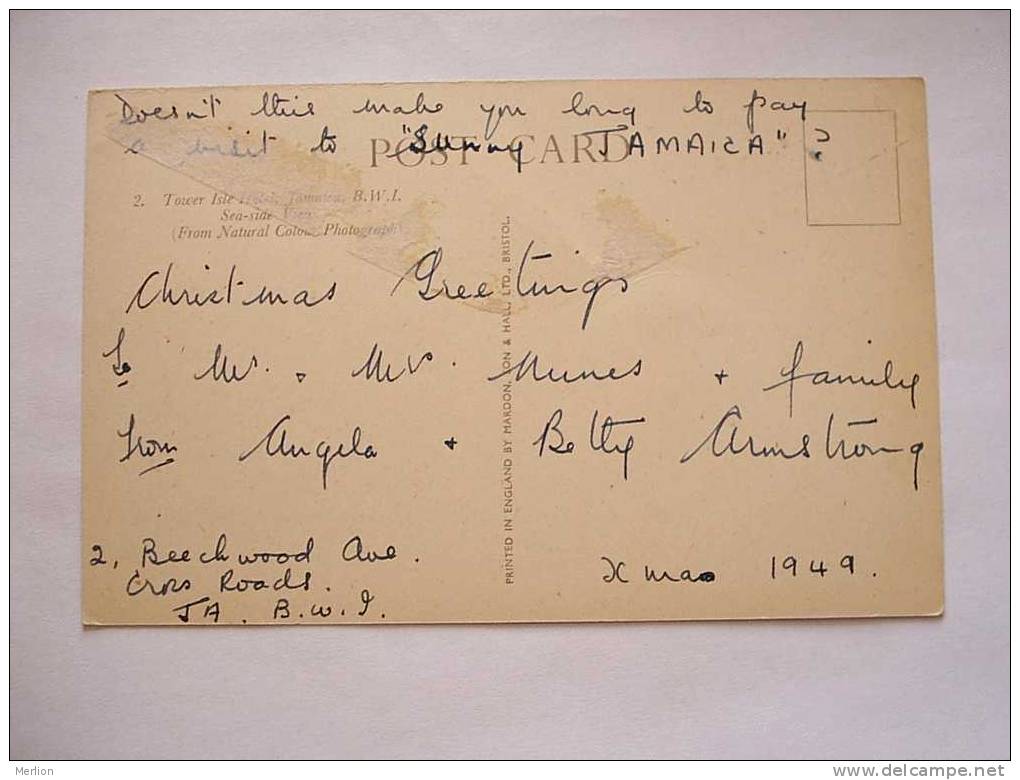 Doesn't this make you long to pay
a visit to "Sunny JAMAICA"?
POST CARD
2. Tower Isle Hotel, Jamaica, B.W.I.
Sea-side View
(From Natural Colour Photograph)
Christmas Greetings
To Mr. + Mrs. Nunes + family
from Angela + Betty Armstrong
2, Beechwood Ave.
Cross Roads.
JA. B.W.I.
Xmas 1949.
PRINTED IN ENGLAND BY MARDON, SON & HALL, LTD., BRISTOL.
Merlion
www.delcampe.net